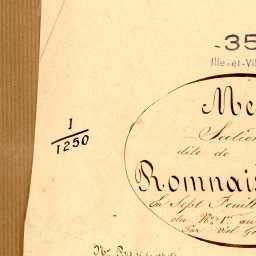 -35
Ille-et-Vil
Me
1
1250
Section
dite de
Romnais
En Sept Feuill
du N° 1er au
Par